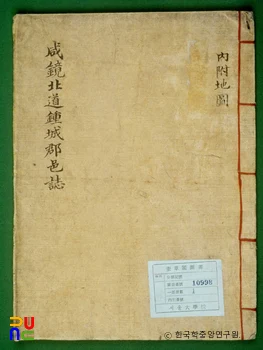 內附地圖
咸鏡北道鍾城郡邑誌
10998
1
ⓒ 한국학중앙연구원